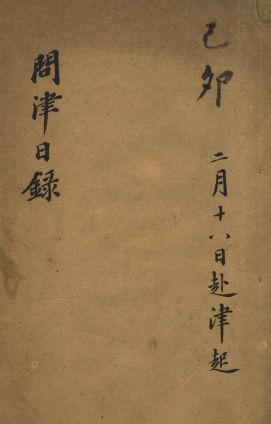 己卯
二月十八日赴津起
問津日録